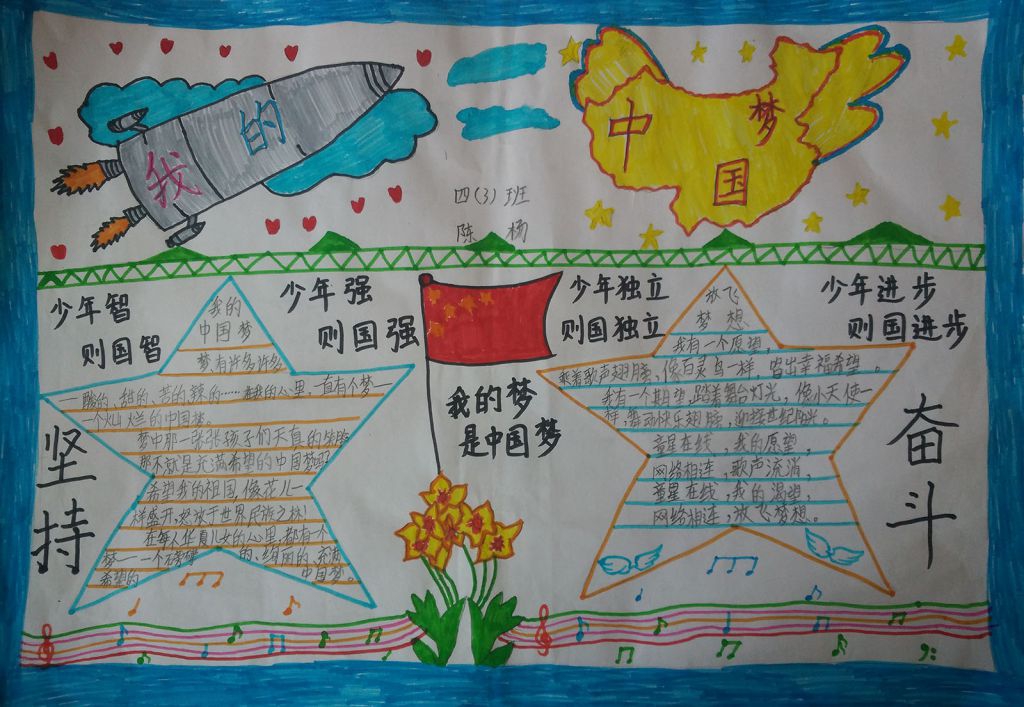 我的
中国梦
四(3)班
陈 杨
少年智
则国智
少年强
则国强
少年独立
则国独立
少年进步
则国进步
我的梦
是中国梦
坚持
奋斗
我的
中国梦
梦,有许多许多
一酸的、甜的、苦的、辣的……在我的心里,一直有个梦一
一个灿烂的中国梦。
梦中那一张张孩子们天真的笑脸
那不就是充满希望的中国梦吗?
希望我的祖国,像花儿一
样盛开,怒放于世界民族之林!
在每人华夏儿女的心里,都有个
梦——一个 的、绚丽的、充满
希望的 中国梦。
放飞
梦想
我有一个愿望,
乘着歌声翅膀,像百灵鸟一样,唱出幸福希望。
我有一个期望,踏着舞台灯光,像小天使一
样,舞动快乐翅膀,迎接世纪阳光。
童星在线,我的愿望,
网络相连,歌声流淌,
童星在线,我的渴望,
网络相连,放飞梦想。